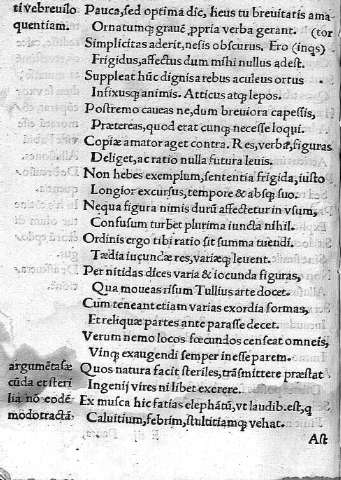 ti vebreuilo
quentiam.
Pauca, sed optima dic, heus tu breuitatis ama-
Ornatumq; grauē, ꝓpria verba gerant. (tor
Simplicitas aderit, nesis obscurus. Ero (inqs)
Frigidus, affectus dum mihi nullus adest.
Suppleat hūc digna rebus aculeus ortus
Infixusq; animis. Atticus atq; lepos.
Postremo caueas ne, dum breuiora capessis,
Prætereas, quod erat cunq; necesse loqui.
Copiæ amator aget contra. Res, verba, figuras
Deliget, ac ratio nulla futura leuis.
Non hebes exemplum, sententia frigida, iusto
Longior excursus, tempore & absq; suo.
Nequa figura nimis durū affectetur in vsum,
Confusum turbet plurima iuncta nihil.
Ordinis ergo tibi ratio sit summa tuendi.
Tædia iucundæ res, variæq; leuent.
Per nitidas dices varia & iocunda figuras,
Qua moueas risum Tullius arte docet.
Cum teneant etiam varias exordia formas,
Et reliquæ partes ante parasse decet.
Verum nemo locos fœcundos censeat omneis,
Vinq; exaugendi semper inesse parem.
argumētasæ
cūda et steri
lia nō eodē
modo tractā.
Quos natura facit steriles, trāsmittere præstat
Ingenij vires ni libet exerere.
Ex musca hic fatias elephātū, vt laudib. est, q
Caluitium, febrim, stultitiamq; vehat.
Ast